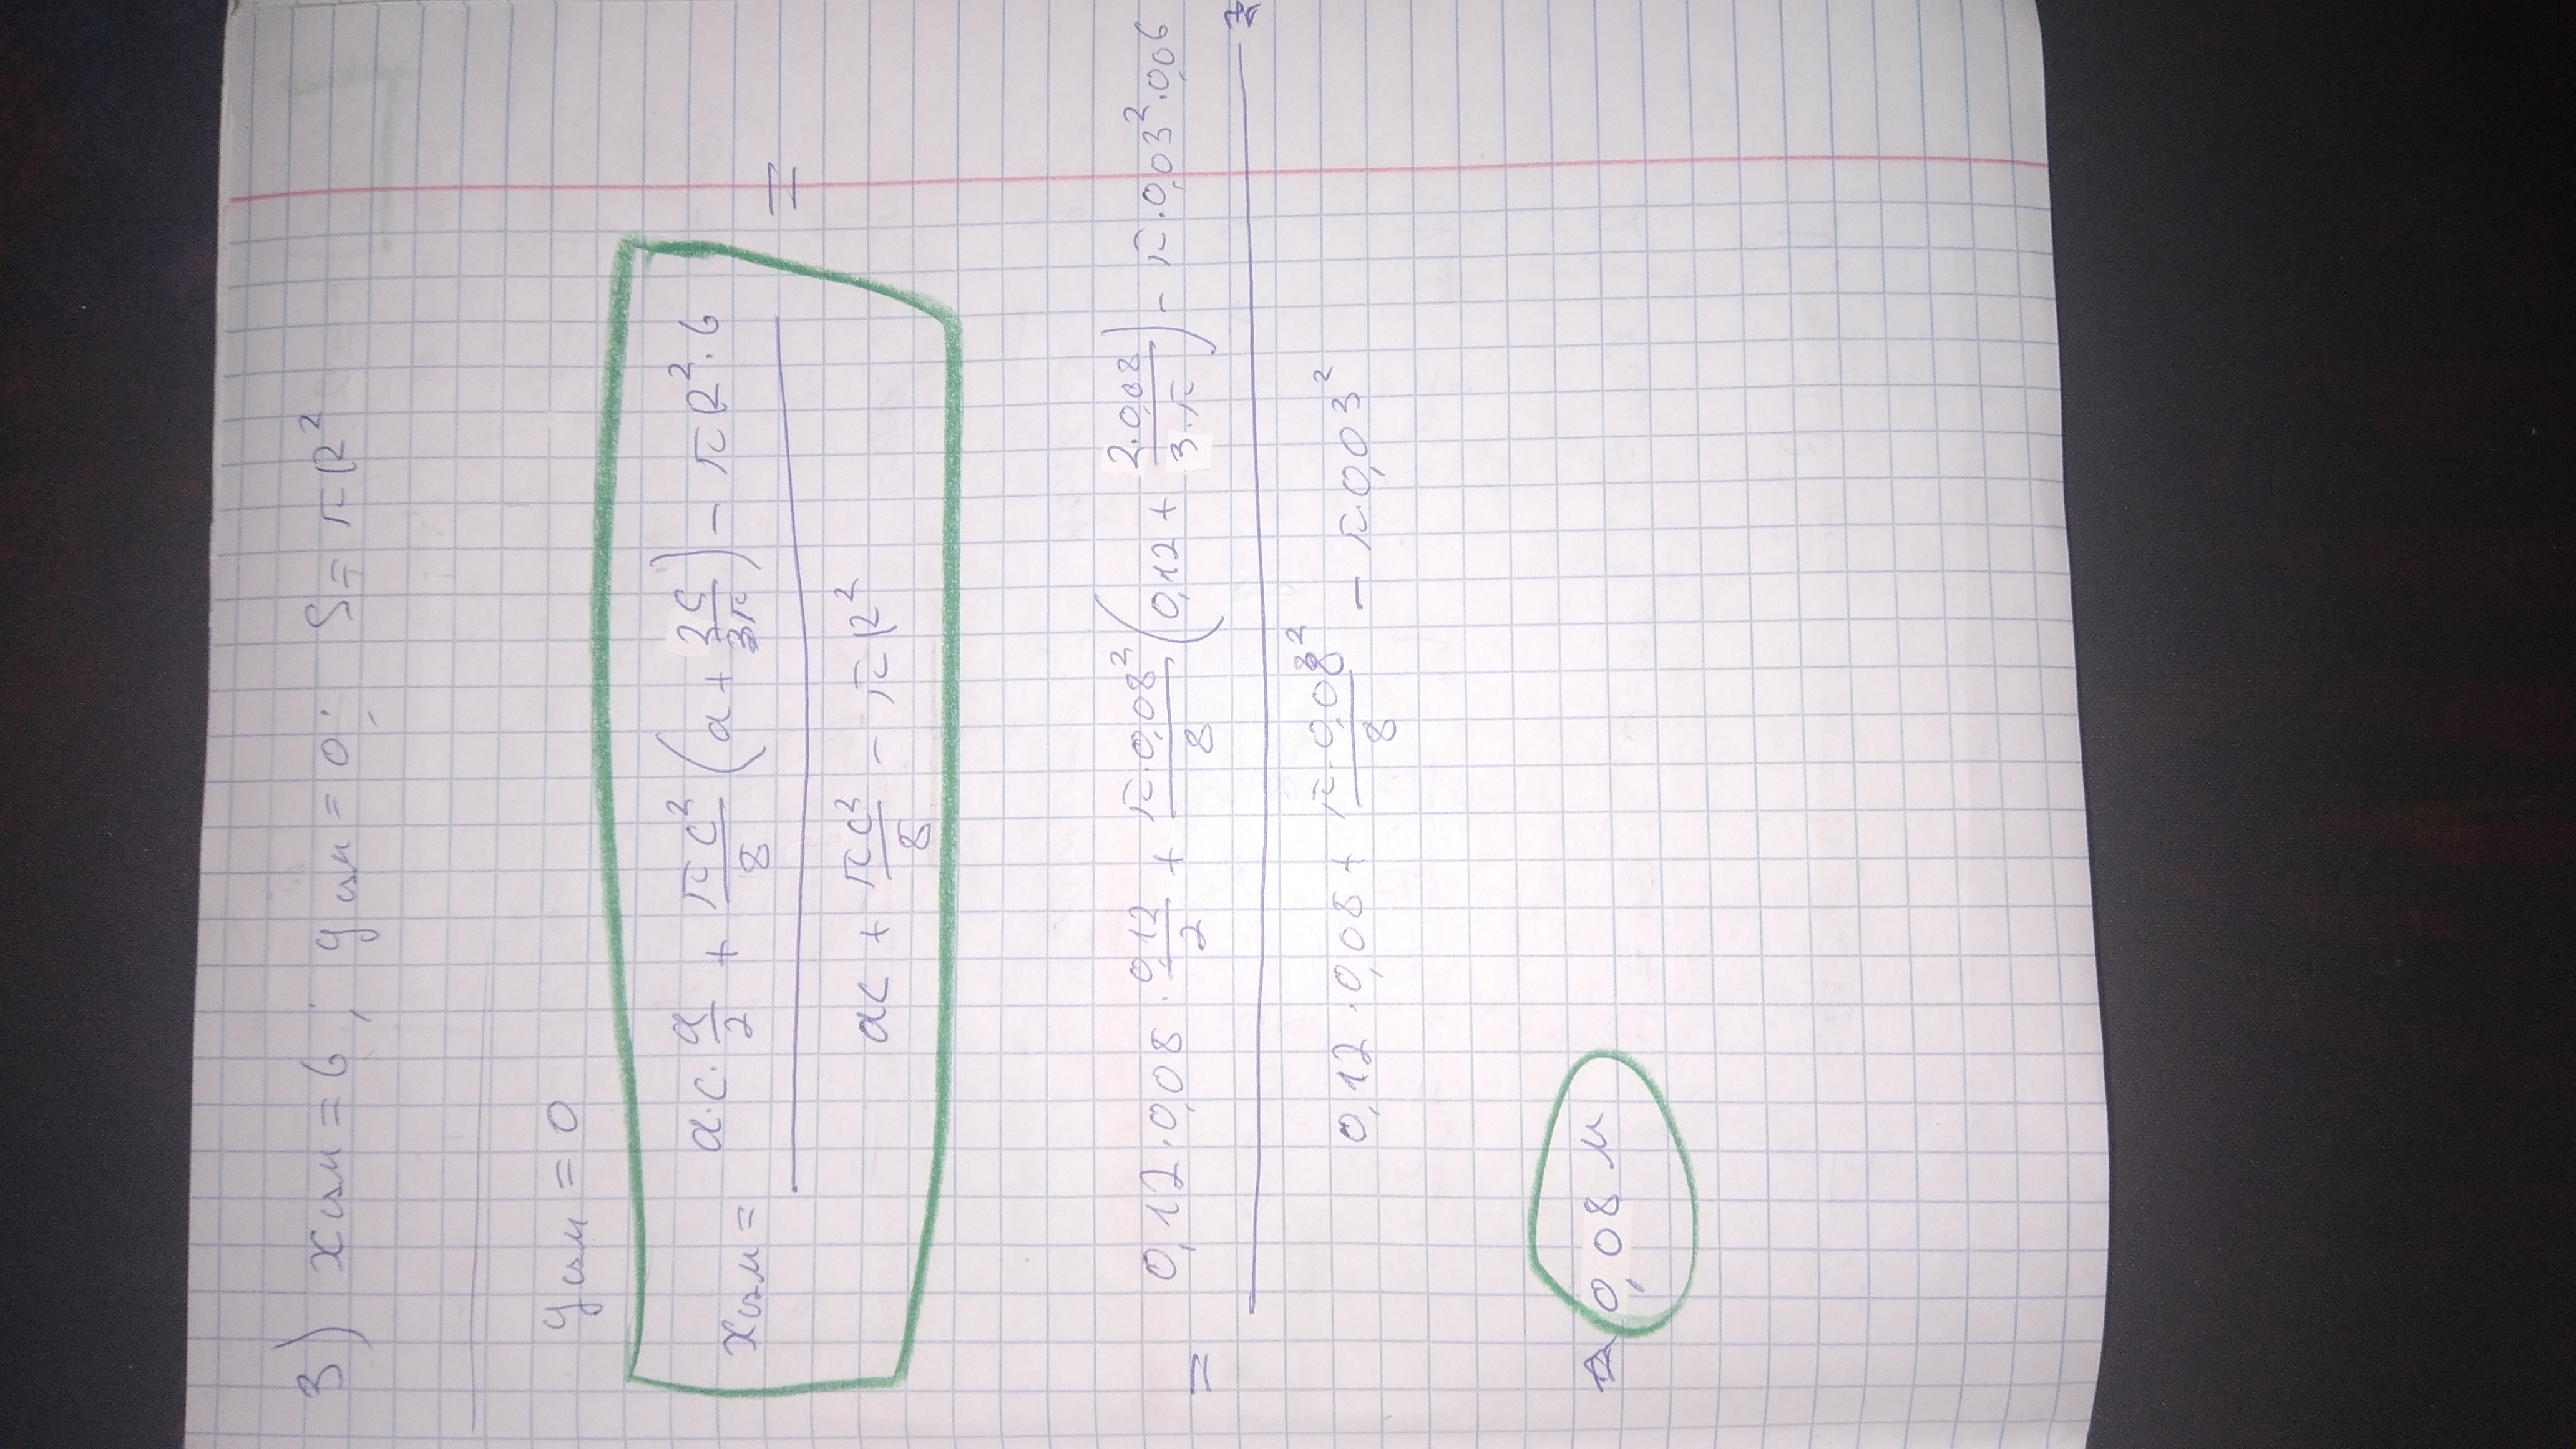 3) xцм = b; yцм = 0; S = πR²
yцм = 0
xцм = (a·c·a/2 + πc²/8 (a + 2c/3π) − πR²·b) / (ac + πc²/8 − πR²) =
= (0,12·0,08·0,12/2 + π·0,08²/8 (0,12 + 2·0,08/3·π) − π·0,03²·0,06) / (0,12·0,08 + π·0,08²/8 − π·0,03²) ≈
≈ 0,08 м